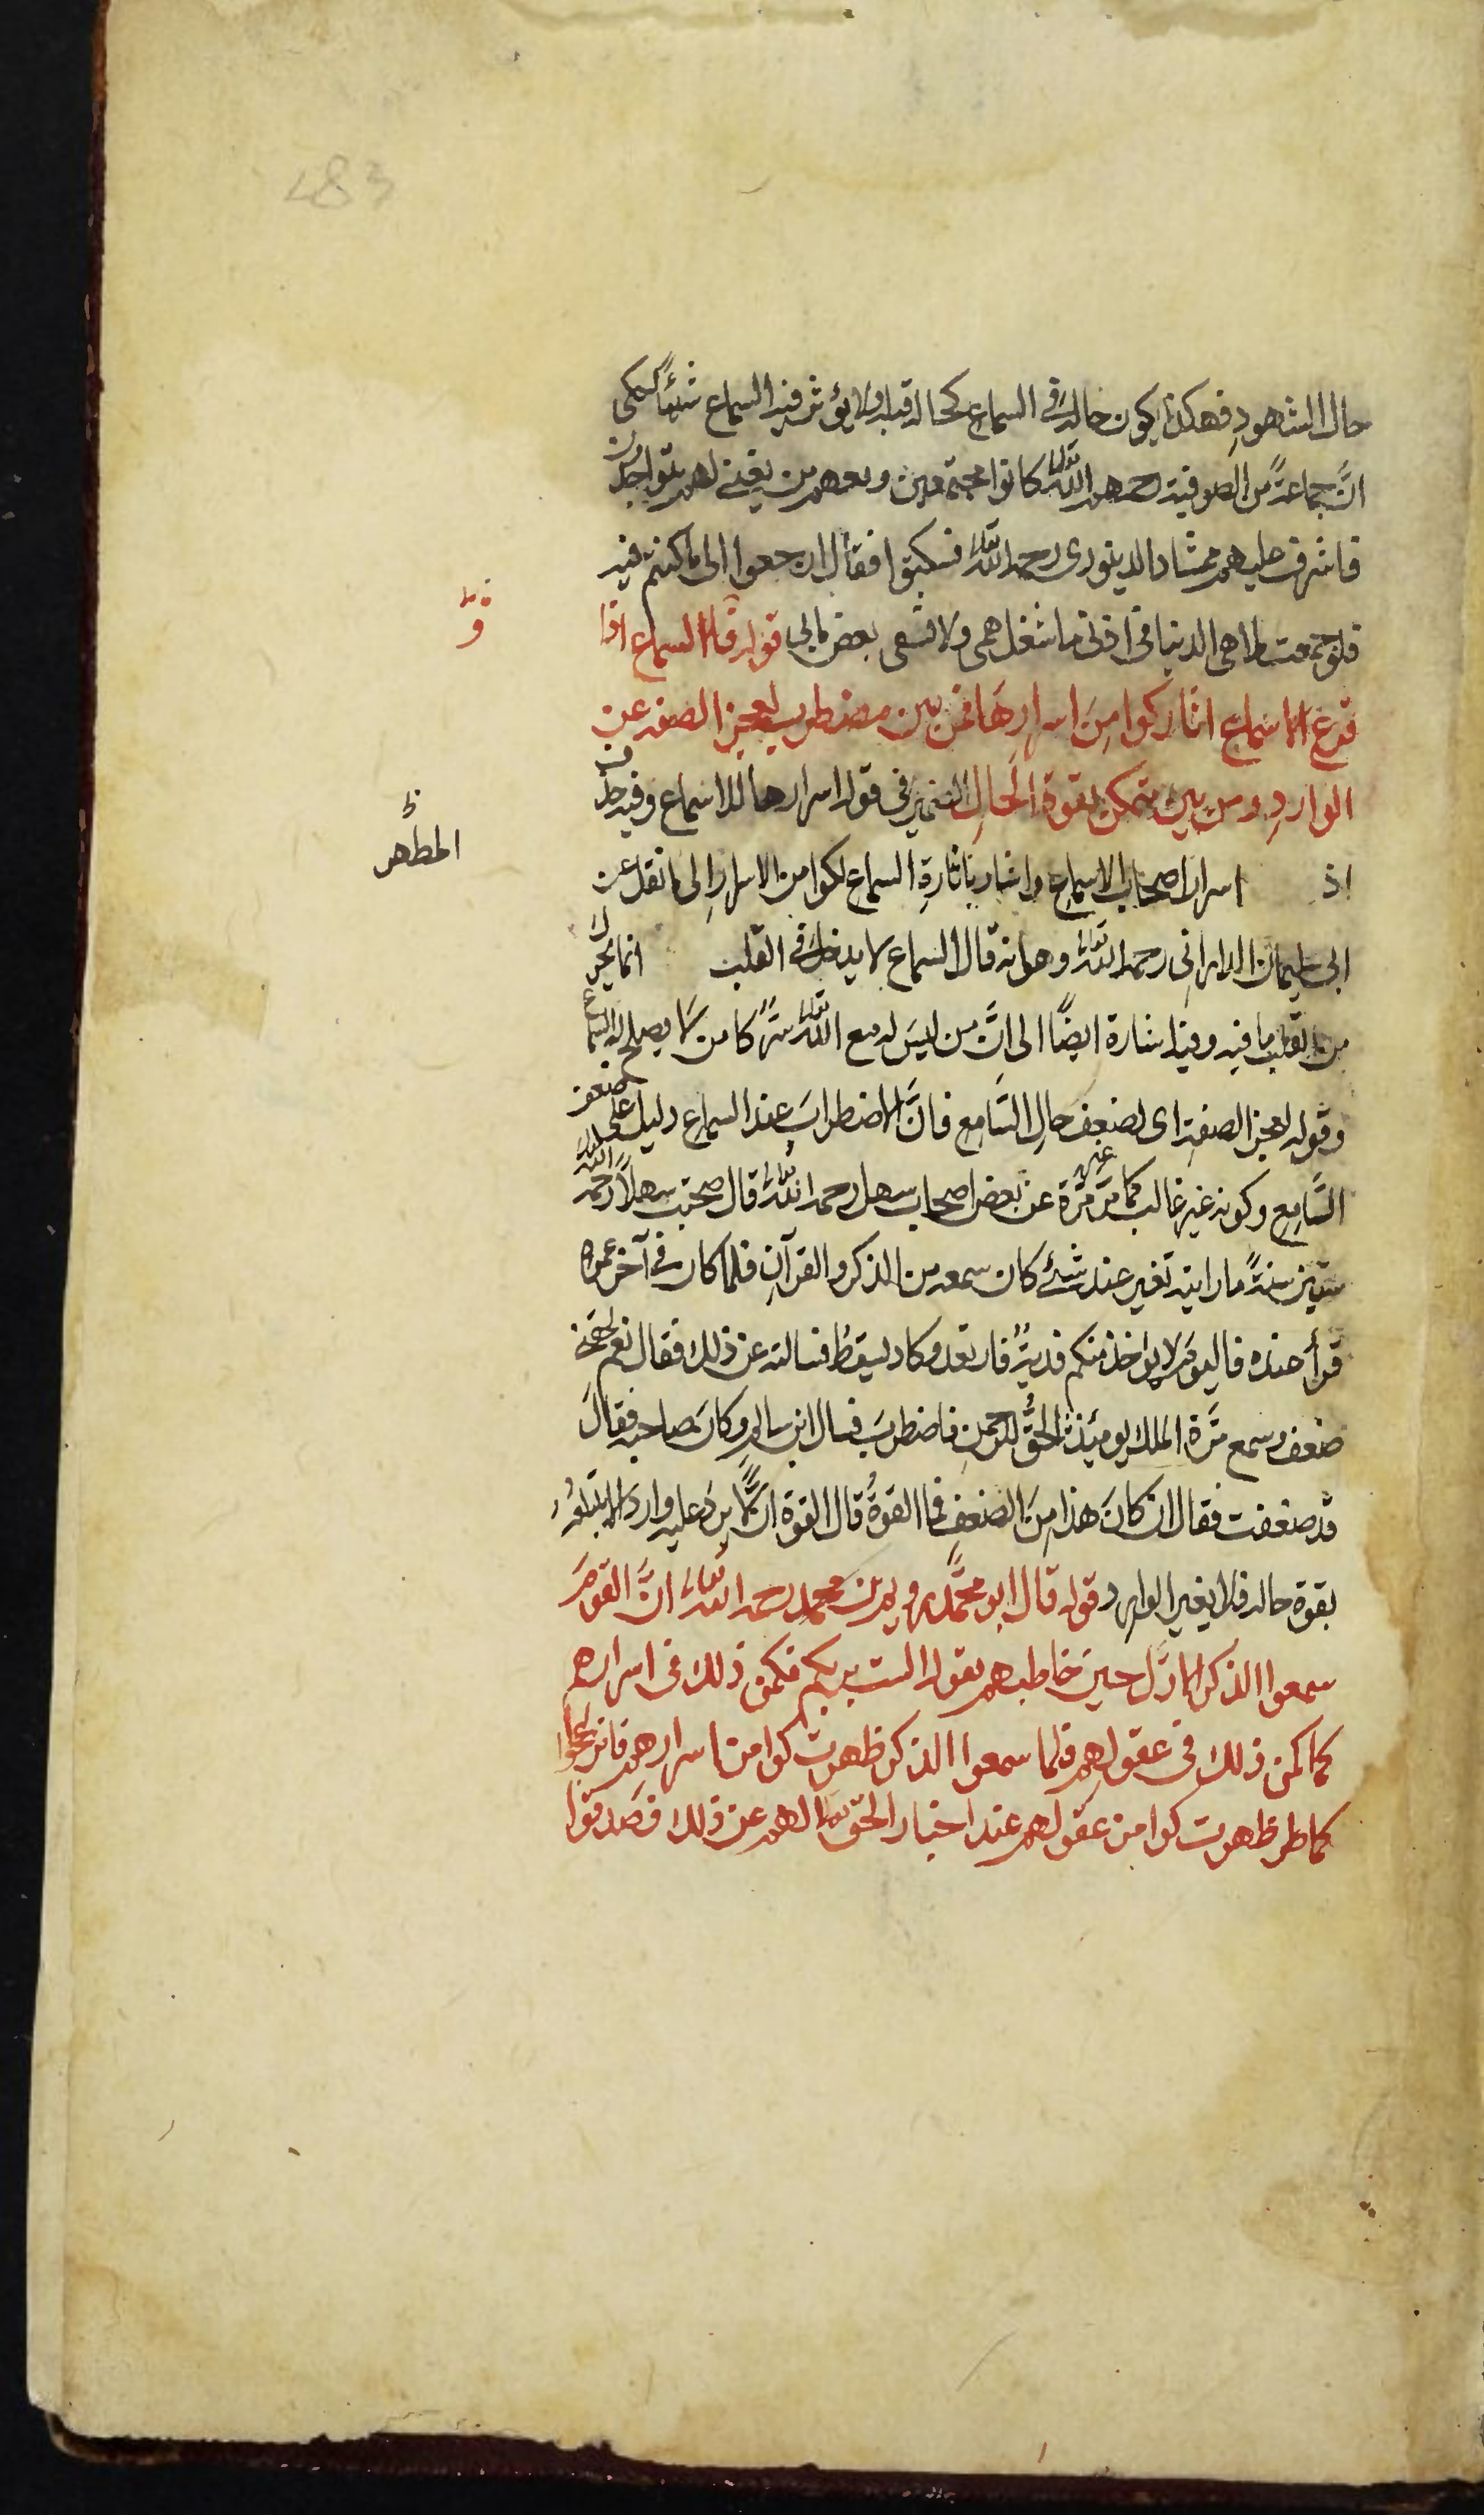 283
حال الشهودِ فهكذا يكون حاله فى السماعِ كحاله قبله ولا يؤثر فيه السماع شيئًا كما حكى
انَّ جماعةً من الصوفية رحمهم الله تعالى كانوا مجتمعين ومعهم من يغنى لهم يتواجدون
فاشرف عليهم ممشاد الدينورى رحمه الله تعالى فسكتوا فقال ارجعوا الى ما كنتم فيه
فلو جمعت ملاهى الدنيا فى اذنى ما شغل همى ولا شفى بعض مابى قوله فاذا السماع اذا
قرع الاسماع اثار كوامِنَ اسرارِهَا فمن بين مضطرب لعجز الصفة عن
الواردِ ومن بين متمكن بقوة الحالِ الضمير فى قوله اسرارها للاسماع وفيه حذف
اذ اسرار اصحاب الاسماع واشار باثارةِ السماع لكوامن الاسرارِ الى ما نقل عن
المظهر
ابى سليمان الدارانى رحمه الله تعالى وهو انه قال السماع لا يدخل فى القلب انما يحرك
من القلب ما فيه وفيه اشارة ايضًا الى انَّ من ليسَ له مع الله تعالى سرٌ كامن لا يصلح له السماع
وقوله لعجز الصفةِ اى لضعف حالِ السَّامع فانَّ الاضطرابَ عند السماع دليل على ضعف
السَّامِع وكونه غير غالب كما مر غير مرة عن بعض اصحاب سهل رحمه الله تعالى قال صحبت سهلًا رحمه الله
ستين سنةً ما رايته تغير عند شئ كان سمعه من الذكر والقرآنِ فلما كان فى آخر عمره
قرأ عنده فاليوم لا يؤخذ منكم فديةٌ فارتعد وكاد يسقط فسالته عن ذلك فقال نعم لحقنى
ضعف وسمع مَرة الملك يومئذ الحقُّ للرحمنِ فاضطربَ فسال ابن سالم وكانَ صاحبه فقالَ
قد ضعفت فقال ان كانَ هذا مِنَ الضعفِ فما القوةُ قال القوة ان لا يرد عليه وارد الا يبتلعُه
بقوة حاله فلا يغيره الوارد قوله قال ابو محمَّد رويم بن محمد رحمه الله تعالى انَّ القومَ
سمعوا الذكر الاوّل حين خاطبهم بقوله الست بربكم فكمن ذلك فى اسرارهم
كما كمن ذلك فى عقولهم فلما سمعوا الذكر ظهرت كوامن اسرارهم فانزعجوا
كما ظهرت كوامن عقولهم عند اخبار الحق تعالى لهم عن ذلك فصدقوا